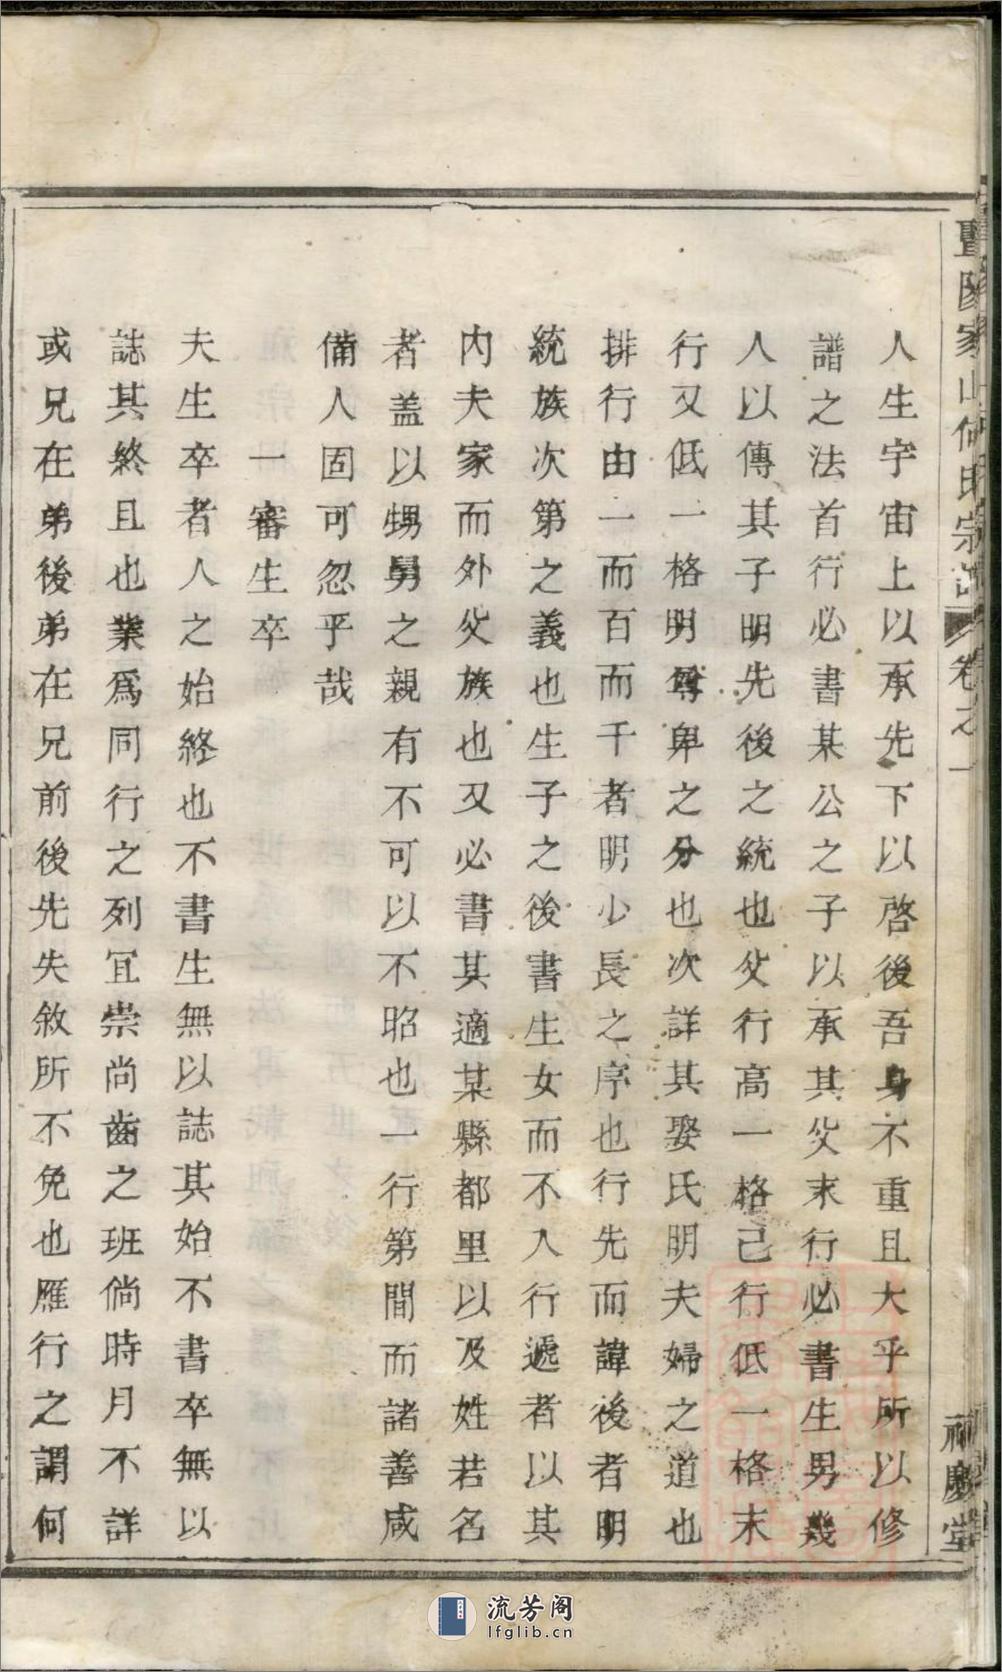 人生宇宙上以承先下以啓後吾身不重且大乎所以修
譜之法首行必書某公之子以承其父末行必書生男幾
人以傳其子明先後之統也父行高一格己行低一格末
行又低一格明尊卑之分也次詳其娶氏明夫婦之道也
排行由一而百而千者明少長之序也行先而諱後者明
統族次第之義也生子之後書生女而不入行遞者以其
內夫家而外父族也又必書其適某縣都里以及姓若名
者盖以甥舅之親有不可以不昭也一行第間而諸善咸
備人固可忽乎哉
一審生卒
夫生卒者人之始終也不書生無以誌其始不書卒無以
誌其終且也業爲同行之列冝崇尚齒之班倘時月不詳
或兄在弟後弟在兄前後先失敘所不免也雁行之謂何
家山何氏宗譜 卷之一
祠慶堂
流芳阁
lfglib.cn